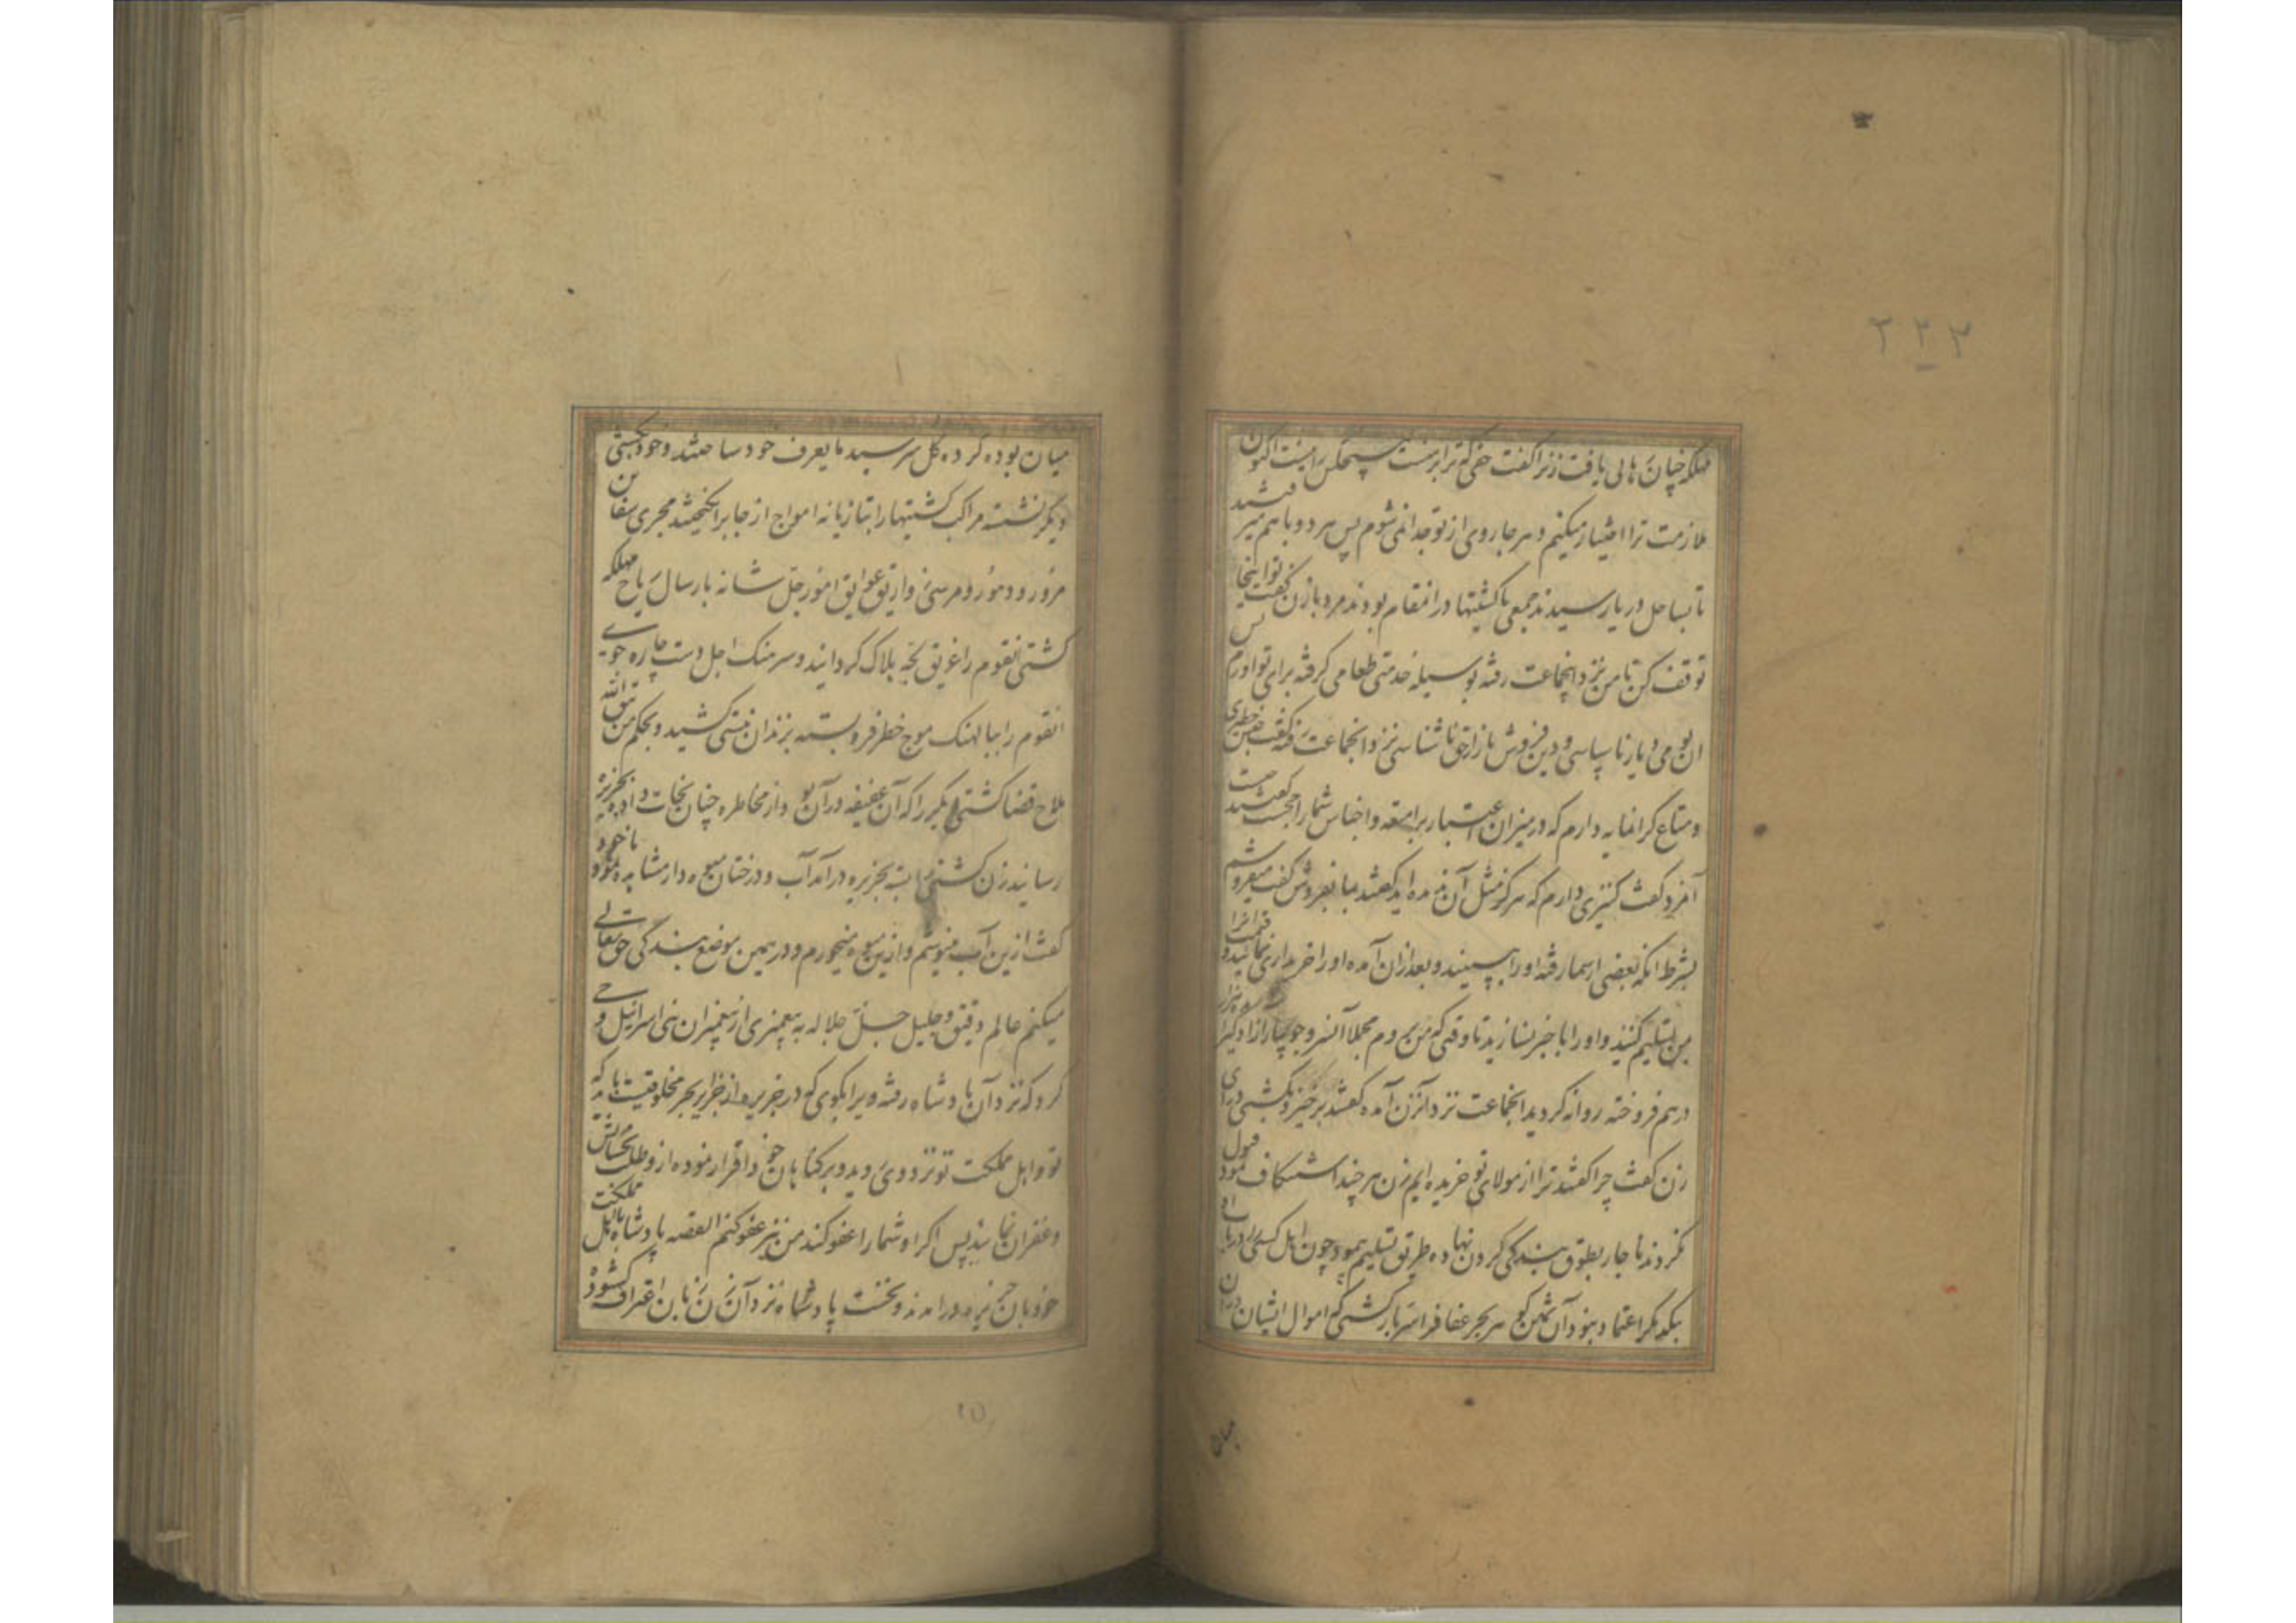 ۳۳۳
مهلکه چنان هالی یافت زنرا گفت حقی که ترا بر منست هیچکس را نیست اکنون
ملازمت ترا اختیار میکنم و هر جا روی از تو جدا نمی شوم پس هر دو با هم میرفتند
تا بساحل دریا رسیدند جمعی با کشتیها در انمقام بودند مرد با زن گفت تو اینجا
توقف کن تا من نزد انجماعت رفته بوسیله خدمتی طعامی گرفته برای تو اورم پس
ان نزد انجماعت رفته گفت جنس خطیری
و متاع گرانمایه دارم که در میزان اعتبار برامتعه و اجناس شما راجحست گفتند
آنمرد گفت کنیزی دارم که هرگز مثل آن ندیده اید گفتند بما بفروش گفت میفروشم
بشرط انکه بعضی از شما رفته او را ببینند و بعد از ان آمده او را خریداری نمائید و قیمت انرا
بمن تسلیم کنید و او را با خبر نسازید تا وقتی که من بروم مجملا
درهم فروخته روانه گردید انجماعت نزد آنزن آمده گفتند برخیز و بکشتی درآی
زن گفت چرا گفتند ترا از مولای تو خریده ایم زن هر چند استنکاف نمود قبول
نکردند ناچار بطوق بندگی گردن نهاده طریق تسلیم پیمود چون اهل کشتی را
بیکدیگر اعتماد نبود آن ثمین گوهر بحر عفاف را سربار کشتی که اموال ایشان در ان
میان
میان بوده کرده کل سرسبد ما یعرف خود ساختند و خود بکشتی
دیگر نشسته مراکب کشتیها را بتازیانه امواج از جا برانگیختند مجری سفاین
مرور و دهور و مرسی عوایق امور جل شانه بارسال ریاح مهلکه
کشتی انقوم را غریق لجه هلاک گردانیده و سرهنک اجل دست چاره جوی
انقوم را بپالهنک موج خطر فرو بسته بزندان نیستی کشید و بحکم من یتق الله
ملاح قضا کشتی دیگر را که آن عفیفه در آن بود از مخاطره چنان نجات داده بجزیره
رسانید زن کشتی را بسته بجزیره درآمد آب و درختان میوه دار مشاهده نمود با خود
گفت از این آب مینوشم و از این میوه میخورم و در همین موضع بندگی حق تعالی
میکنم عالم دقیق و جلیل جل جلاله به پیغمبری از پیغمبران بنی اسرائیل وحی
کرد که نزد آن پادشاه رفته ویرا بگوی که در جزیره از جزایر بحر مخلوقیست باید که
تو و اهل مملکت تو نزد وی روید و بر گناهان خود اقرار نموده از و طلب بخشایش
و غفران نمائید پس اگر او شما را عفو کند من نیز عفو کنم القصه پادشاه با اهل مملکت
خود بان جزیره درامدند و نخست پادشاه نزد آن زن زبان اعتراف گشود